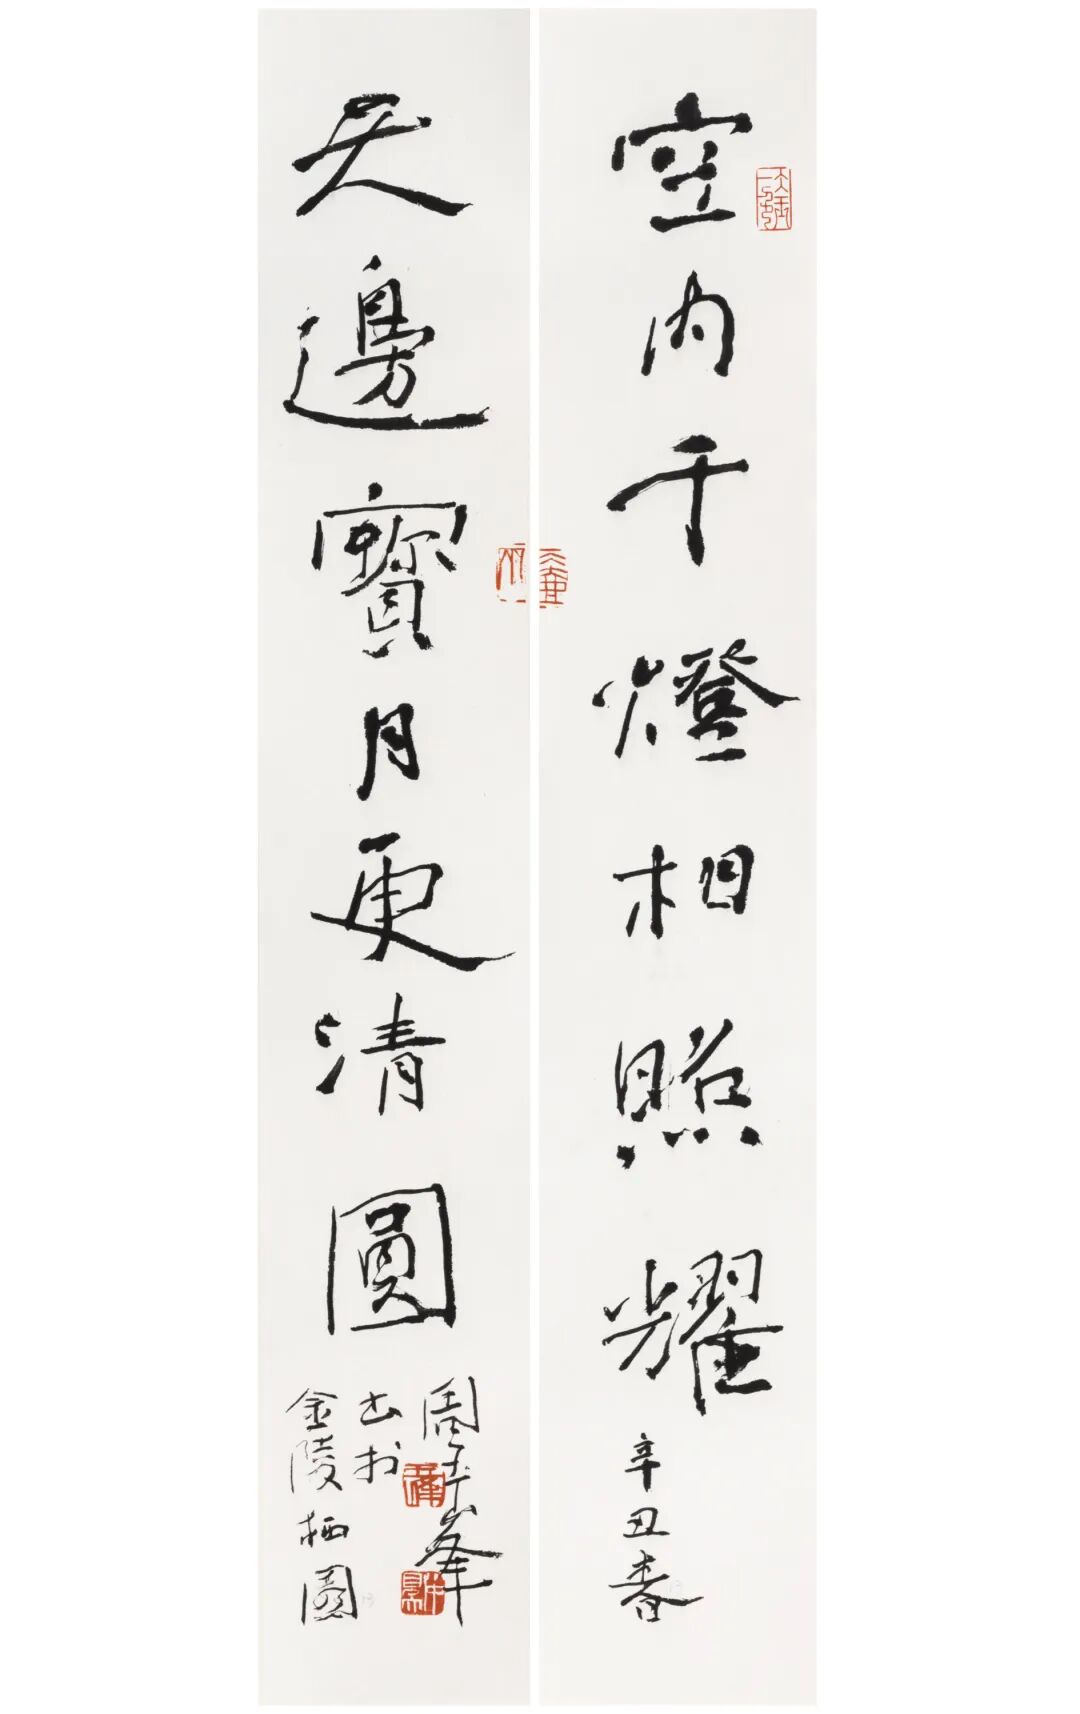 空内千燈相照耀
辛丑春
天邊寶月更清圓
周玉峯
书於
金陵栖園